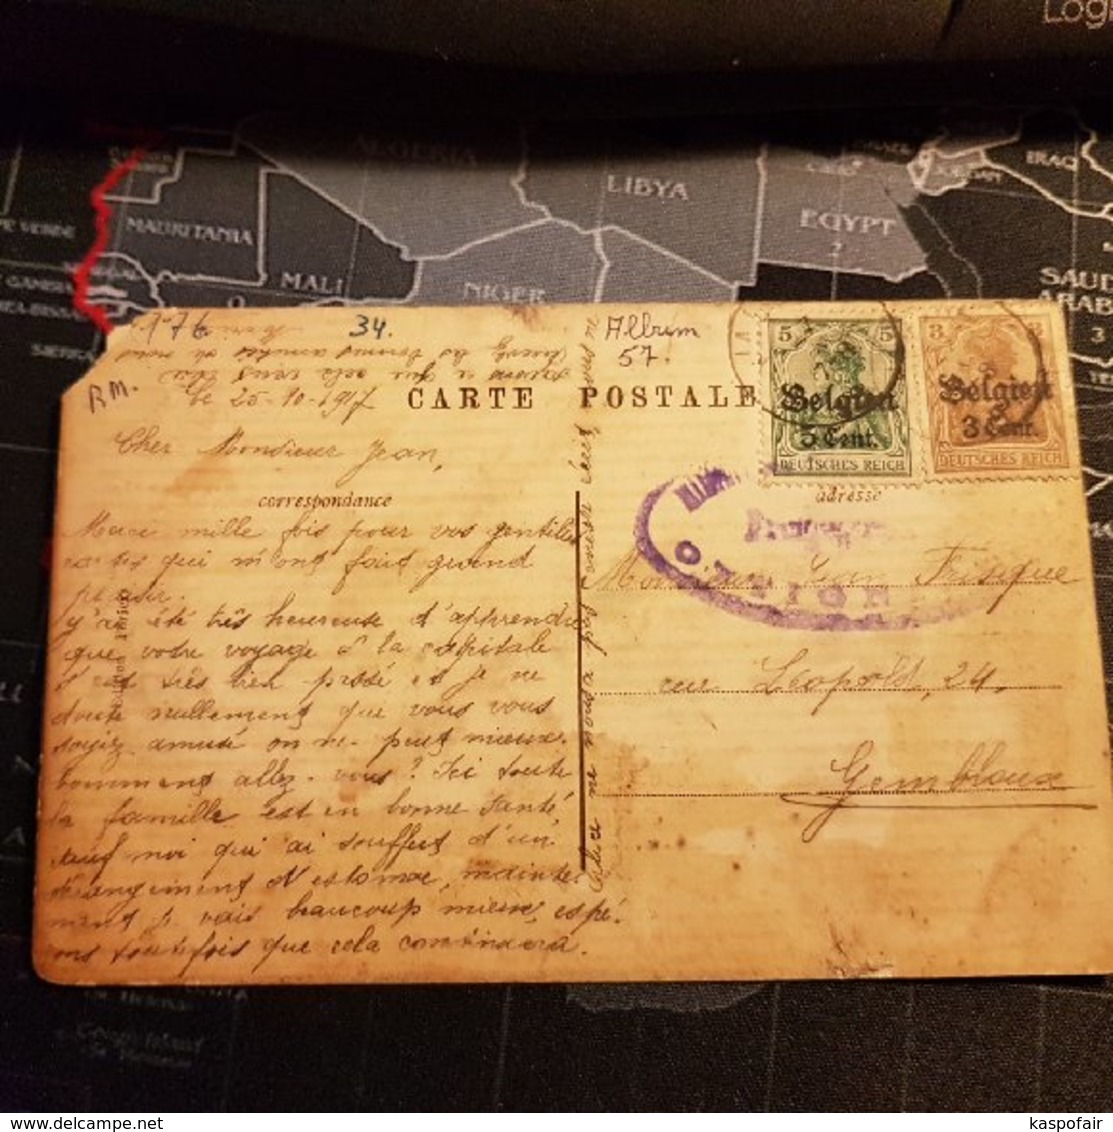 Log
ALGERIA
LIBYA
EGYPT
IRAQ
MAURITANIA
MALI
NIGER
SAUD
ARAB
176
34.
Album
57.
RM.
le 25-10-1917
CARTE POSTALE
5 5
Belgien
5 Cent.
DEUTSCHES REICH
3
Belgien
3 Cent.
DEUTSCHES REICH
Cher Monsieur Jean,
correspondance
adresse
Merci mille fois pour vos gentilles
cartes qui m'ont fait grand
plaisir.
J'ai été très heureuse d'apprendre
que votre voyage à la capitale
s'est très bien passé et je ne
doute nullement que vous vous
soyiz amusé on ne peut mieux.
Comment allez-vous? Ici toute
la famille est en bonne santé,
sauf moi qui ai souffert d'un
dérangement d'estomac, mainte-
nant je vais beaucoup mieux, espé-
ons toutefois que cela continuera.
Monsieur Jean Frisque
rue Léopold, 24,
Gembloux
kaspofair